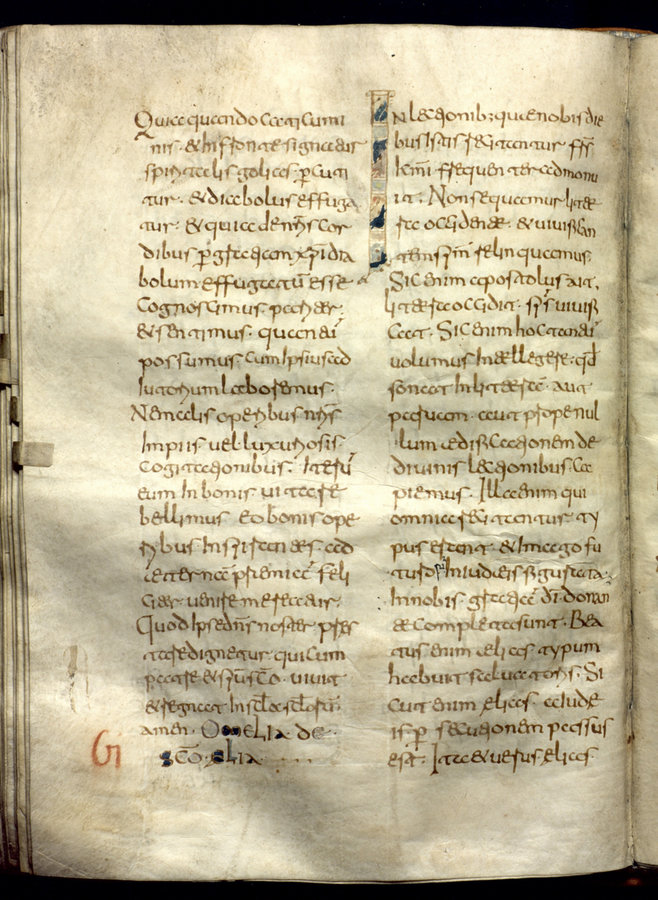 Quia quando caticumi
nis · & in fronte signatur
spiritalis golias p̄cuti
tur · & diabolus effuga
tur · & quia de nr̄is cor
dibus p̄ gratiam xp̄i dia
bolum effugatū esse
cognoscimus pariter
& sentimus · quantū
possumus cum ipsius ad
iutorium laboremus ·
Ne malis operibus nr̄is
impiis vel luxuriosis
cogitationibus · Iterū
eum in bonis vitare
bellimus et bonis ope
ribus insistentes ad
aeterna premia feli
citer venire mereamur ·
Quod ipse dn̄s noster pres
tare dignetur qui cum
patre & sp̄u sc̄o · vivit
& regnat in sc̄la sc̄lorū
amen · Omelia de
sc̄o · elia
In lectionib; quae nobis die
bus istis recitantur fr̄s
km̄i frequenter admonu
it · Non sequamur litte
ra occidente · & vivifican
tem sp̄m relinquamus ·
Sic enim apostolus ait ·
littera occidit · sp̄s vivifi
cat · Sic enim hoc tantū
volumus intellegere · qd̄
sonat in littera · aut
parvam · aut prope nul
lum aedificationem de
divinis lectionibus ca
piemus · Illa enim qui
omnia recitantur · ty
pus erant · & imago fu
turor̄ in iudaeis figurata ·
in nobis gratia dī donan
te completa sunt · Bea
tus enim elias typum
habuit salvatoris · Si
cut enim elias · a iudae
is p̄secutionem passus
est · Ita & verus elias